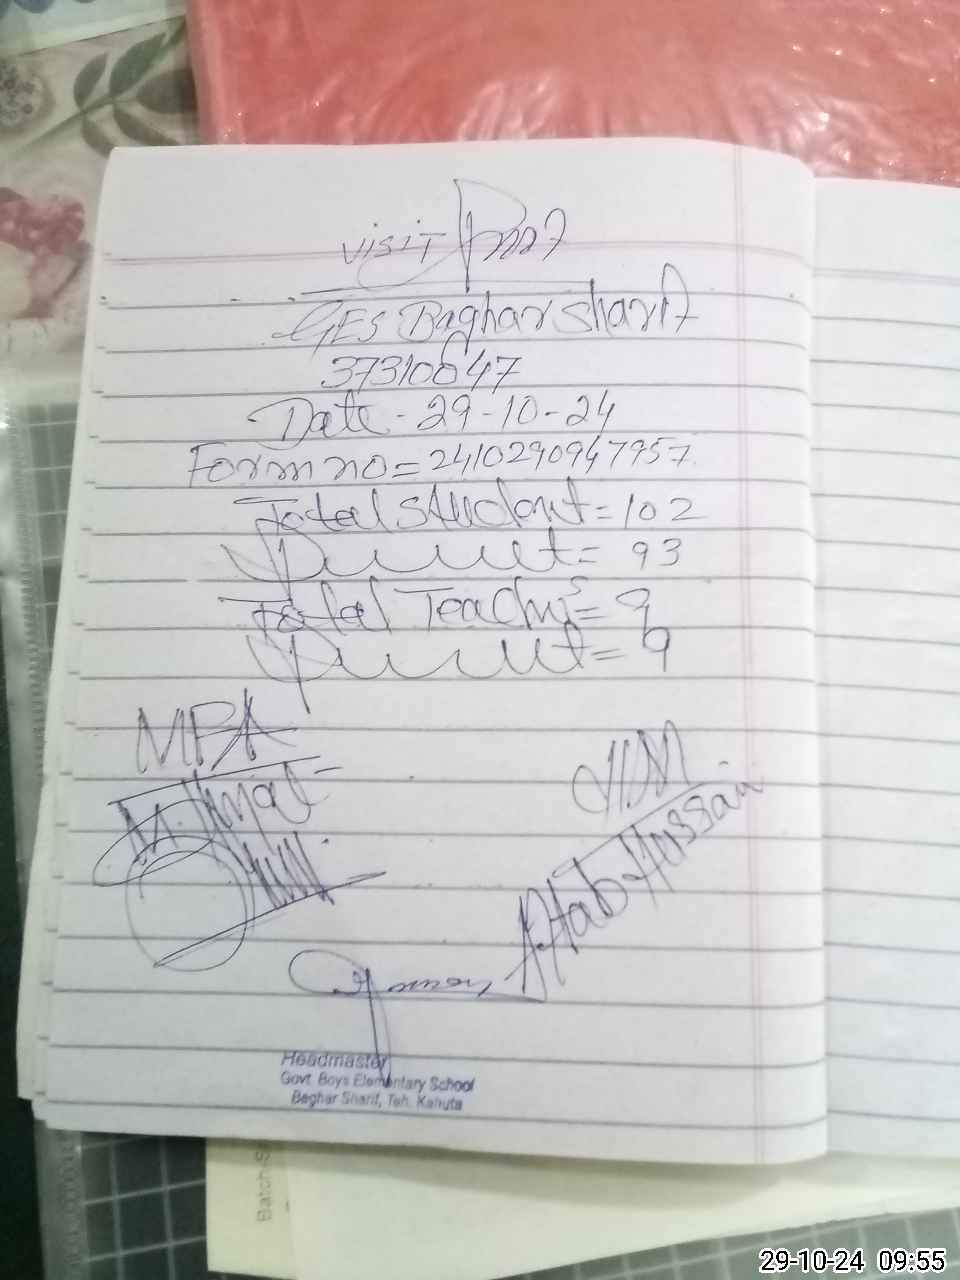 Visit Proof
GES Baghar Sharif
37310047
Date - 29-10-24
Form no = 2410290947957
Total Student = 102
Present = 93
Total Teachers = 9
Present = 9
MPA
M.
HM
Aftab Hussain
Headmaster
Govt. Boys Elementary School
Beghar Sharif, Teh. Kahuta
Batch-S
29-10-24 09:55